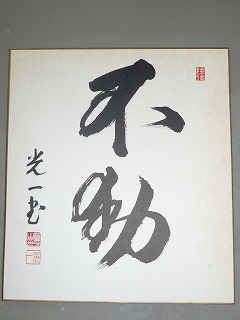 不動
光一書